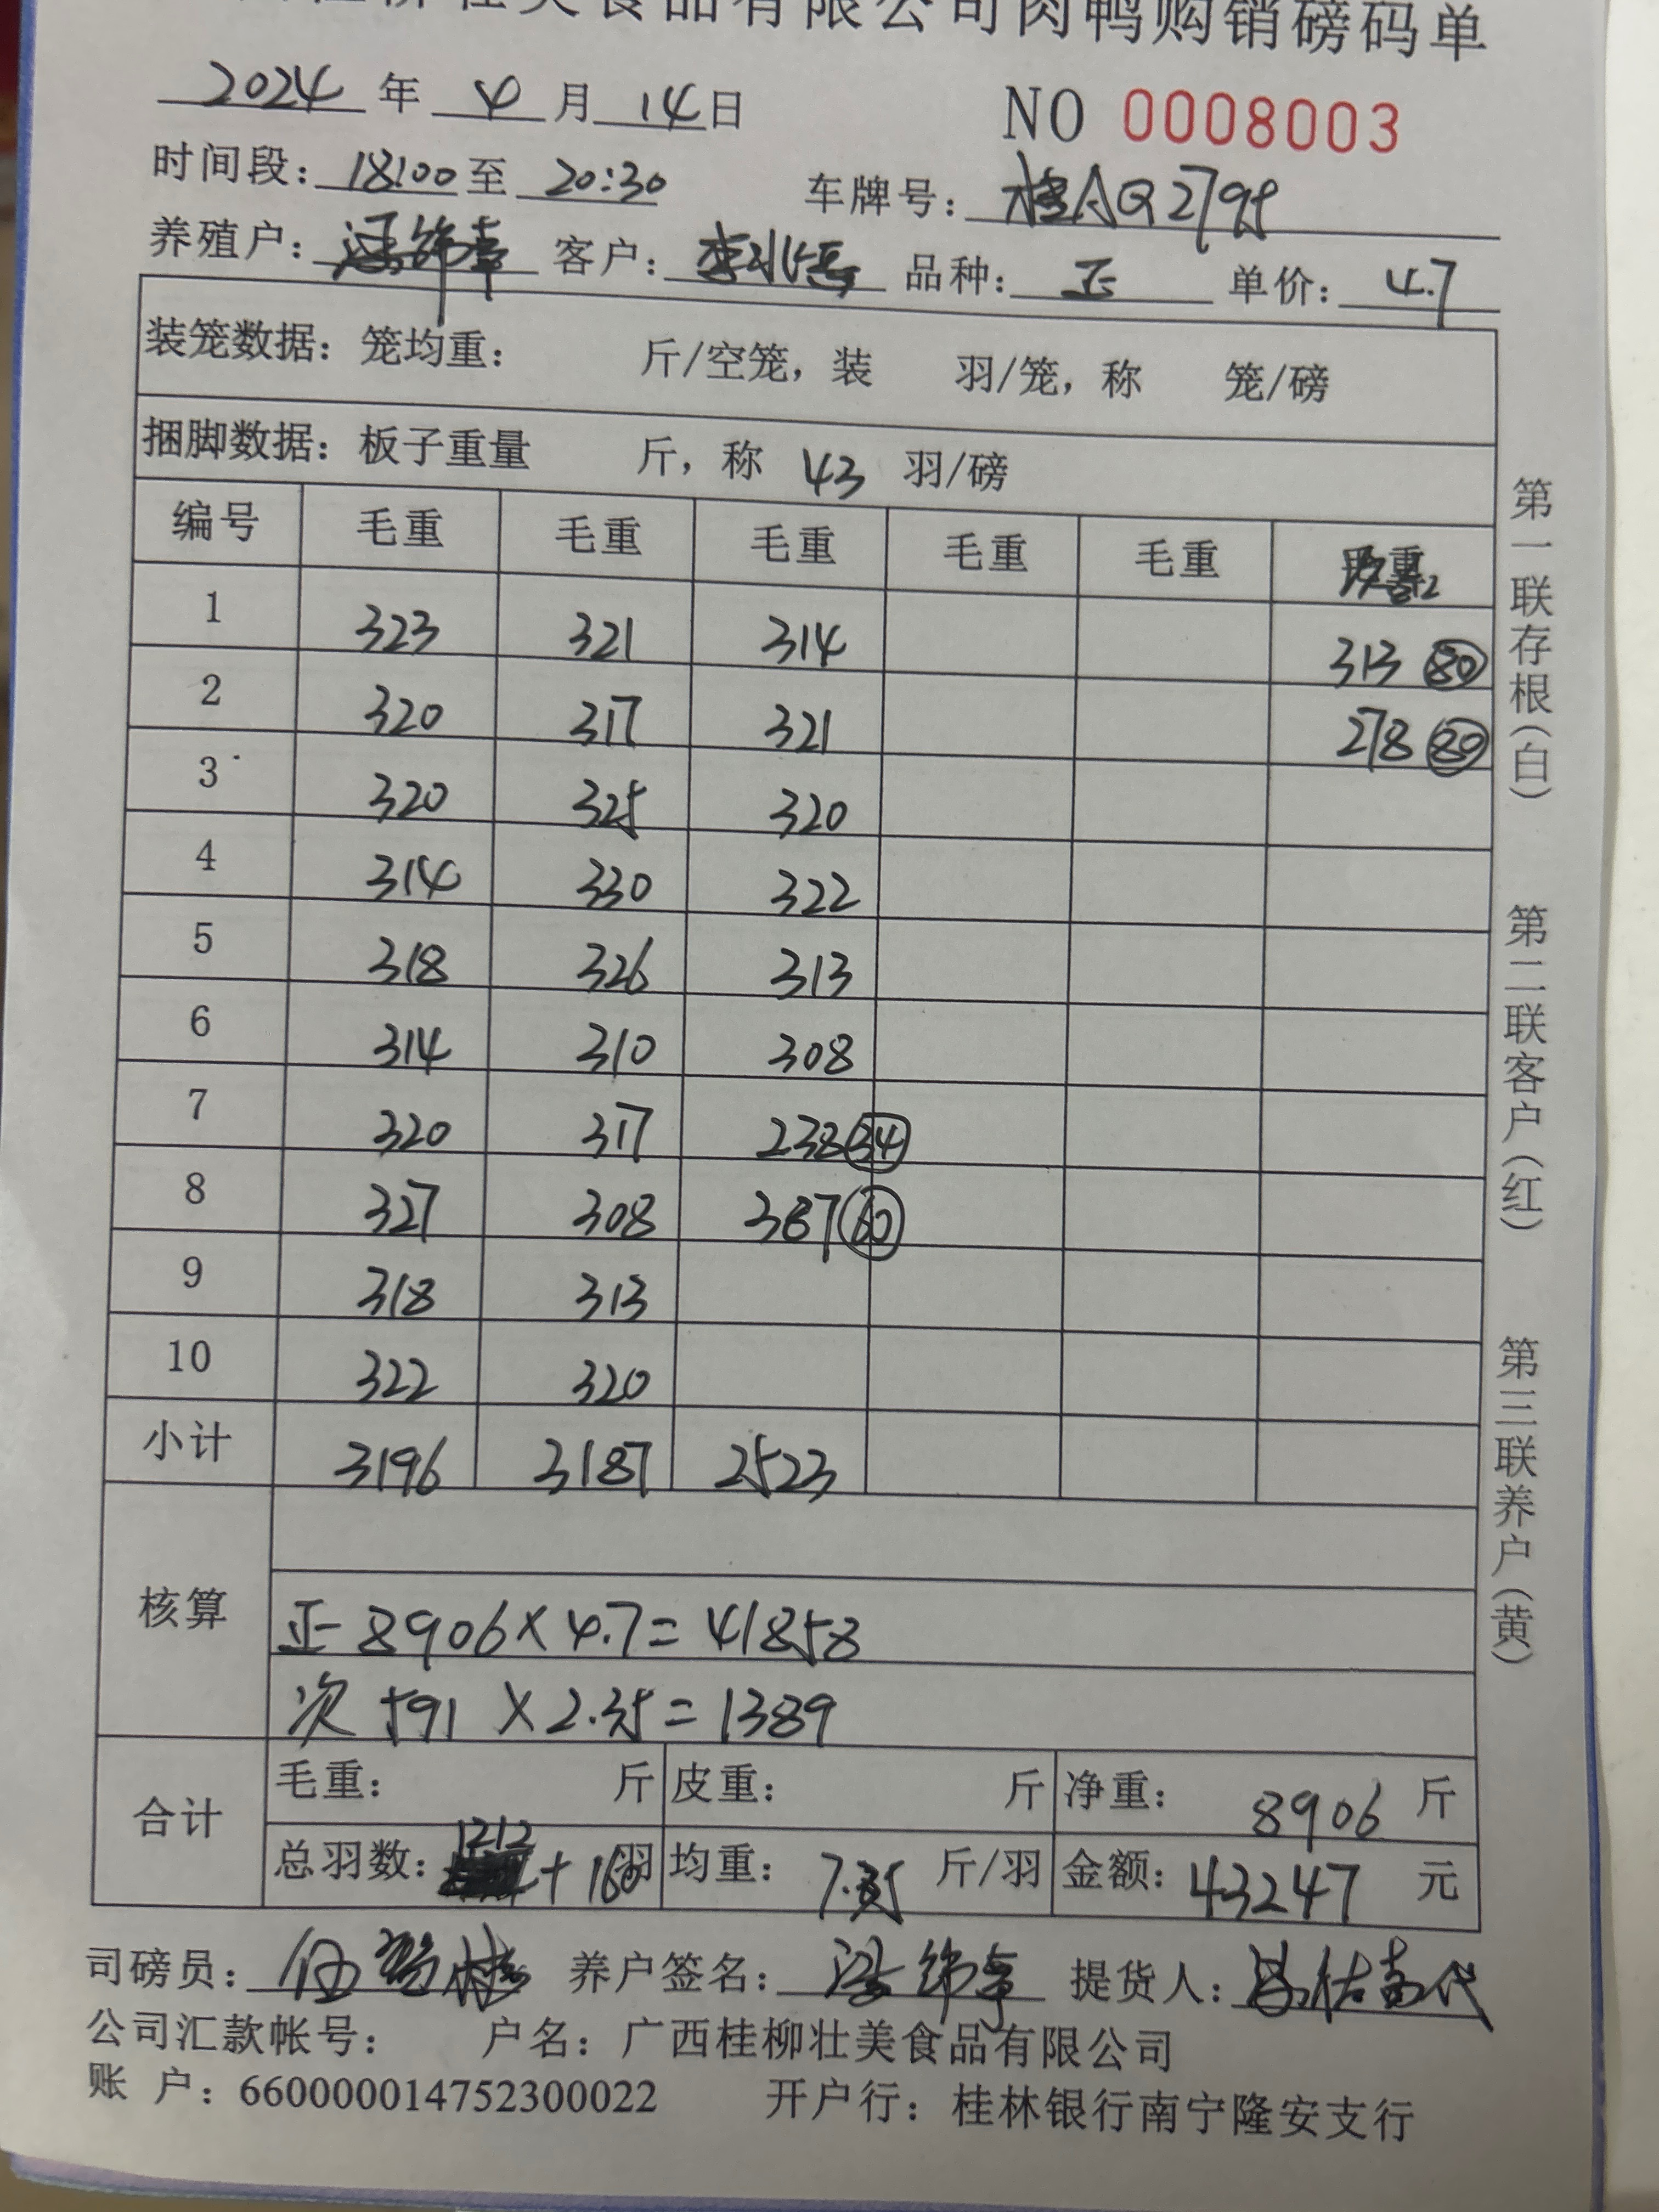 桂柳壮美食品有限公司肉鸭购销磅码单
2024 年 4 月 14 日 NO 0008003
时间段: 18:00 至 20:30 车牌号: 桂AQ2798
养殖户: 客户: 品种: 正 单价: 4.7
装笼数据: 笼均重: 斤/空笼, 装 羽/笼, 称 笼/磅
捆脚数据: 板子重量 斤, 称 43 羽/磅
编号 毛重 毛重 毛重 毛重 毛重
1 323 321 314 313 80
2 320 317 321 278 80
3 320 325 320
4 314 330 322
5 318 326 313
6 314 310 308
7 320 317 238 34
8 327 308 387 60
9 318 313
10 322 320
小计 3196 3187 2523
核算
正 8906×4.7=41858
次 591×2.35=1389
合计 毛重: 斤 皮重: 斤 净重: 8906 斤
总羽数: 1212+160 羽 均重: 7.35 斤/羽 金额: 43247 元
司磅员: 养户签名: 提货人:
公司汇款帐号: 户名: 广西桂柳壮美食品有限公司
账 户: 660000014752300022 开户行: 桂林银行南宁隆安支行
第一联存根(白) 第二联客户(红) 第三联养户(黄)